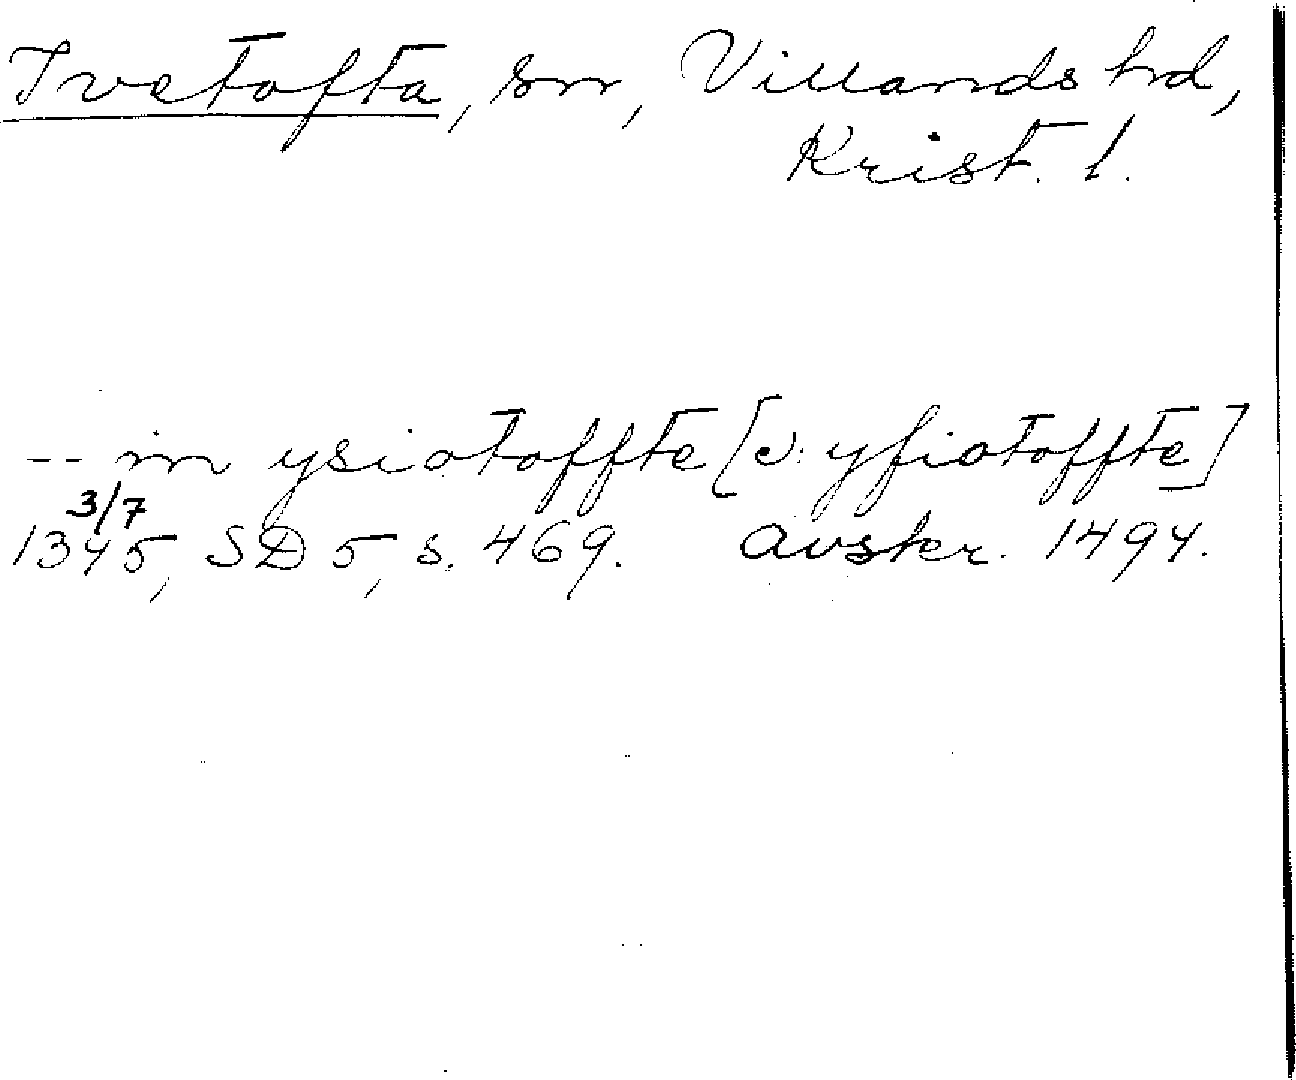 Ivetofta, sn, Villands hd,
Krist. l.
-- in ysiotoffte [ɔ: yfiotoffte]
3/7
1345, SD 5, s. 469. avskr. 1494.